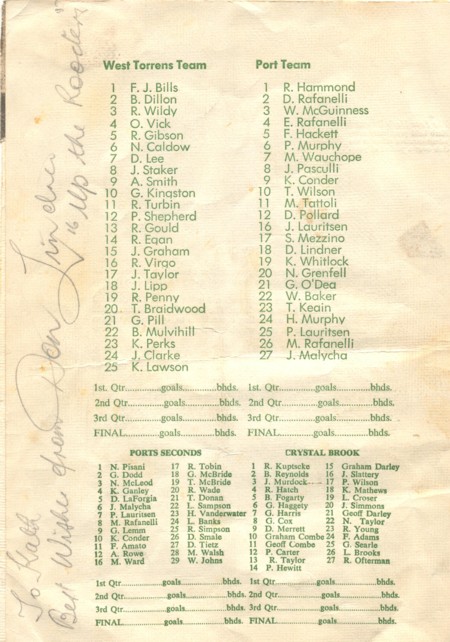 To Roger
Best wishes from Don Lindner
"Up the Roosters"
West Torrens Team
1 F. J. Bills
2 B. Dillon
3 R. Wildy
4 O. Vick
5 R. Gibson
6 N. Caldow
7 D. Lee
8 J. Staker
9 A. Smith
10 G. Kingston
11 R. Turbin
12 P. Shepherd
13 R. Gould
14 R. Egan
15 J. Graham
16 R. Virgo
17 J. Taylor
18 J. Lipp
19 R. Penny
20 T. Braidwood
21 G. Pill
22 B. Mulvihill
23 K. Perks
24 J. Clarke
25 K. Lawson
1st. Qtr...............goals...............bhds.
2nd Qtr...............goals...............bhds.
3rd Qtr...............goals...............bhds.
FINAL...............goals...............bhds.
Port Team
1 R. Hammond
2 D. Rafanelli
3 W. McGuinness
4 E. Rafanelli
5 F. Hackett
6 P. Murphy
7 M. Wauchope
8 J. Pasculli
9 K. Conder
10 T. Wilson
11 M. Tattoli
12 D. Pollard
16 J. Lauritsen
17 S. Mezzino
18 D. Lindner
19 K. Whitlock
20 N. Grenfell
21 G. O'Dea
22 W. Baker
23 T. Keain
24 H. Murphy
25 P. Lauritsen
26 M. Rafanelli
27 J. Malycha
1st. Qtr...............goals...............bhds.
2nd Qtr...............goals...............bhds.
3rd Qtr...............goals...............bhds.
FINAL...............goals...............bhds.
PORTS SECONDS
1 N. Pisani
2 G. Dodd
3 N. McLeod
4 K. Ganley
5 D. LaForgia
6 J. Malycha
7 P. Lauritsen
8 M. Rafanelli
9 G. Lemm
10 K. Conder
11 F. Amato
12 A. Rowe
16 M. Ward
17 R. Tobin
18 G. McBride
19 T. McBride
20 R. Wade
21 T. Donan
22 L. Sampson
23 H. Vanderwater
24 L. Banks
25 R. Simpson
26 D. Smale
27 D. Tietz
28 M. Walsh
29 W. Johns
1st Qtr...............goals...............bhds.
2nd Qtr...............goals...............bhds.
3rd Qtr...............goals...............bhds.
FINAL...............goals...............bhds.
CRYSTAL BROOK
1 R. Kuptscke
2 B. Reynolds
3 J. Murdock
4 R. Hatch
5 B. Fogarty
6 G. Haggety
7 G. Harris
8 G. Cox
9 D. Merrett
10 Graham Combe
11 Geoff Combe
12 P. Carter
13 R. Taylor
14 P. Hewitt
15 Graham Darley
16 J. Slattery
17 P. Wilson
18 K. Mathews
19 L. Croser
20 J. Simmons
21 Geoff Darley
22 N. Taylor
23 R. Young
24 F. Adams
25 G. Searle
26 L. Brooks
27 R. Ofterman
1st Qtr...............goals...............bhds.
2nd Qtr...............goals...............bhds.
3rd Qtr...............goals...............bhds.
FINAL...............goals...............bhds.